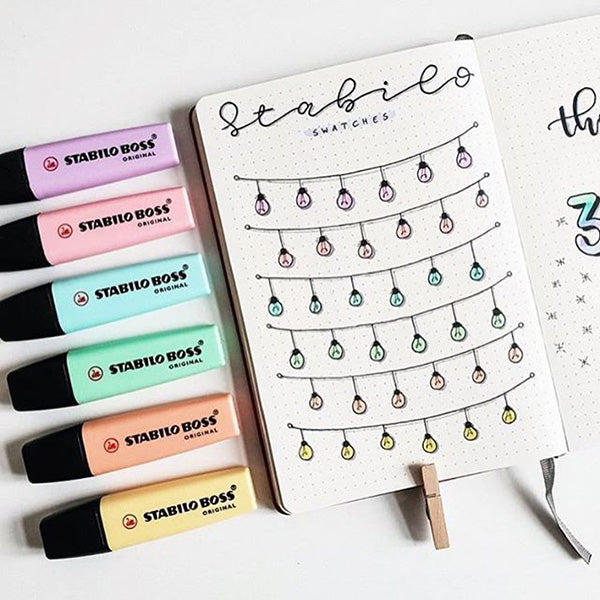 Stabilo
SWATCHES
STABILO BOSS
ORIGINAL
STABILO BOSS
ORIGINAL
STABILO BOSS
ORIGINAL
STABILO BOSS
ORIGINAL
STABILO BOSS
ORIGINAL
STABILO BOSS
ORIGINAL
3